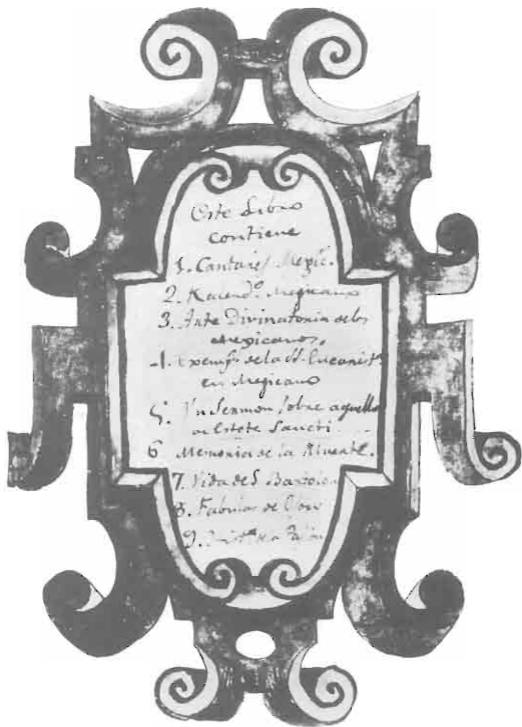 Este Libro
contiene
1. Cantares Mexic.
2. Kalend.º Megicano
3. Arte Divinatoria de los
Mexicanos.
4. Exempl.s de la S. Eucarist.a
en Megicano
5. Un Sermon sobre aquello
de Estote Sancti
6 Memoria de la Muerte.
7. Vida de S. Bartolom
8. Fabulas de Esop
9.